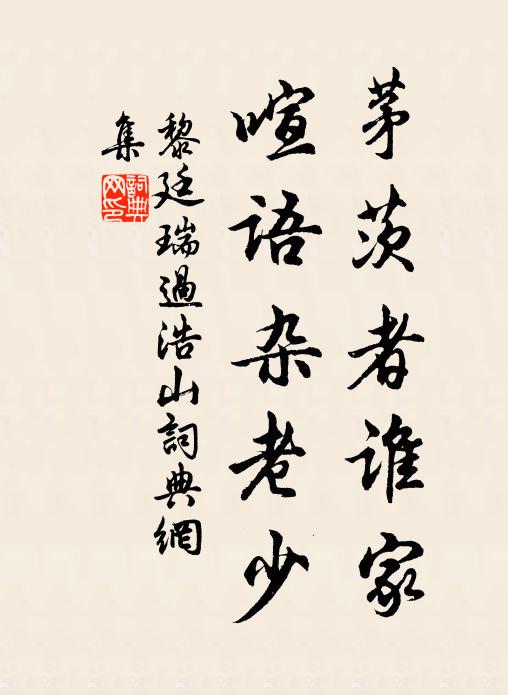 茅茨者谁家
喧语杂老少
黎廷瑞過浩山詞典網
集
詞典網印